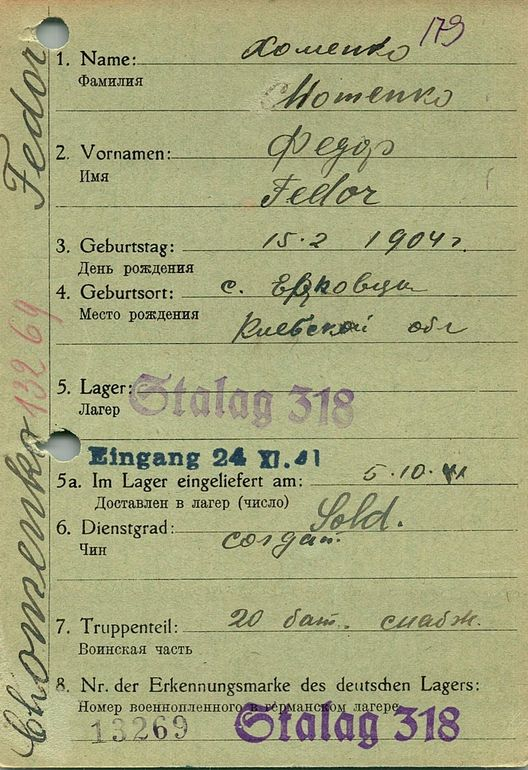 179
1. Name: Хоменко
Фамилия
Chomenko
2. Vornamen: Федор
Имя
Fedor
3. Geburtstag: 15.2 1904 г.
День рождения
4. Geburtsort: с.
Место рождения
Киевской обл
5. Lager: Stalag 318
Лагер
Eingang 24 XI. 41
5a. Im Lager eingeliefert am: 5.10.41
Доставлен в лагер (число)
6. Dienstgrad: Sold.
Чин
солдат.
7. Truppenteil: 20 бат. снабж.
Воинская часть
8. Nr. der Erkennungsmarke des deutschen Lagers:
Номер военнопленного в германском лагере
13269 Stalag 318
Chomenko 13269 Fedor